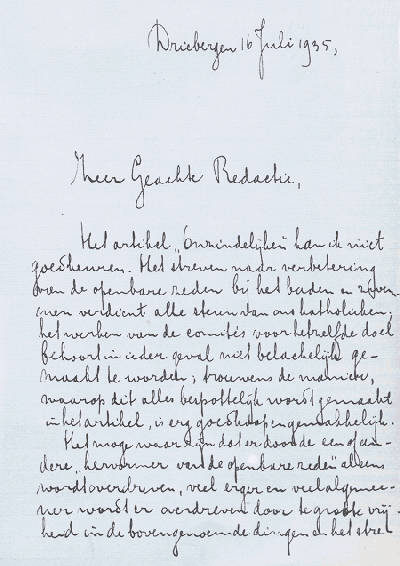 Driebergen 16 Juli 1935,
Zeer Geachte Redactie,
Het artikel „Onzindelijken" kan ik niet
goedkeuren. Het streven naar verbetering
van de openbare zeden bij het baden en zwem-
men verdient alle steun van ons katholieken;
het werken van de comités voor hetzelfde doel
behoort in ieder geval niet belachelijk ge-
maakt te worden; trouwens de manier,
waarop dit alles bespottelijk wordt gemaakt
in het artikel, is erg goedkoop en gemakkelijk.
Het moge waar zijn dat er door de een of an-
dere „hervormer van de openbare zeden" aleens
wordt overdreven, veel erger en veel algemee-
ner wordt er overdreven door te groote vrij-
heid in de bovengenoemde dingen en het stre